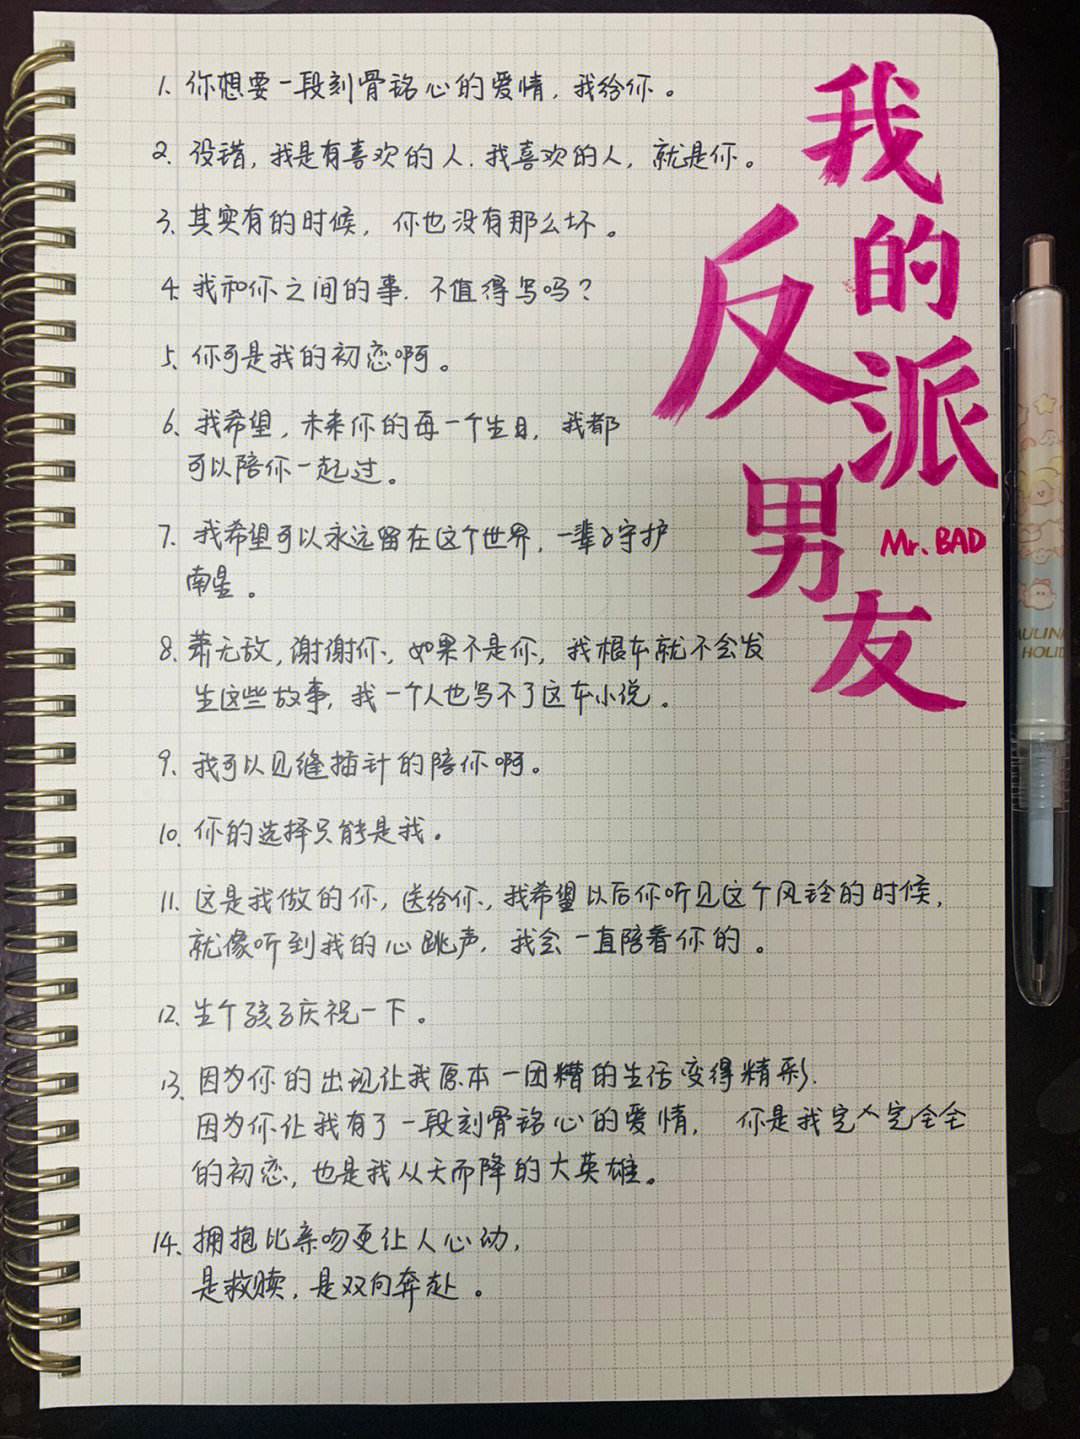 我的
反派
男友
Mr. BAD
1. 你想要一段刻骨铭心的爱情，我给你。
2. 没错，我是有喜欢的人，我喜欢的人，就是你。
3. 其实有的时候，你也没有那么坏。
4. 我和你之间的事，不值得写吗？
5. 你可是我的初恋啊。
6. 我希望，未来你的每一个生日，我都
可以陪你一起过。
7. 我希望可以永远留在这个世界，一辈子守护
南星。
8. 萧无敌，谢谢你，如果不是你，我根本就不会发
生这些故事，我一个人也写不了这本小说。
9. 我可以见缝插针的陪你啊。
10. 你的选择只能是我。
11. 这是我做的你，送给你，我希望以后你听见这个风铃的时候，
就像听到我的心跳声，我会一直陪着你的。
12. 生个孩子庆祝一下。
13. 因为你的出现让我原本一团糟的生活变得精彩，
因为你让我有了一段刻骨铭心的爱情，你是我完完全全
的初恋，也是我从天而降的大英雄。
14. 拥抱比亲吻更让人心动，
是救赎，是双向奔赴。